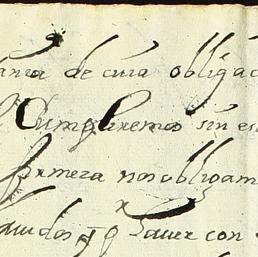 de cuia obligac
Cumpliremos sin es
firmeza nos obligam
q Sauer con